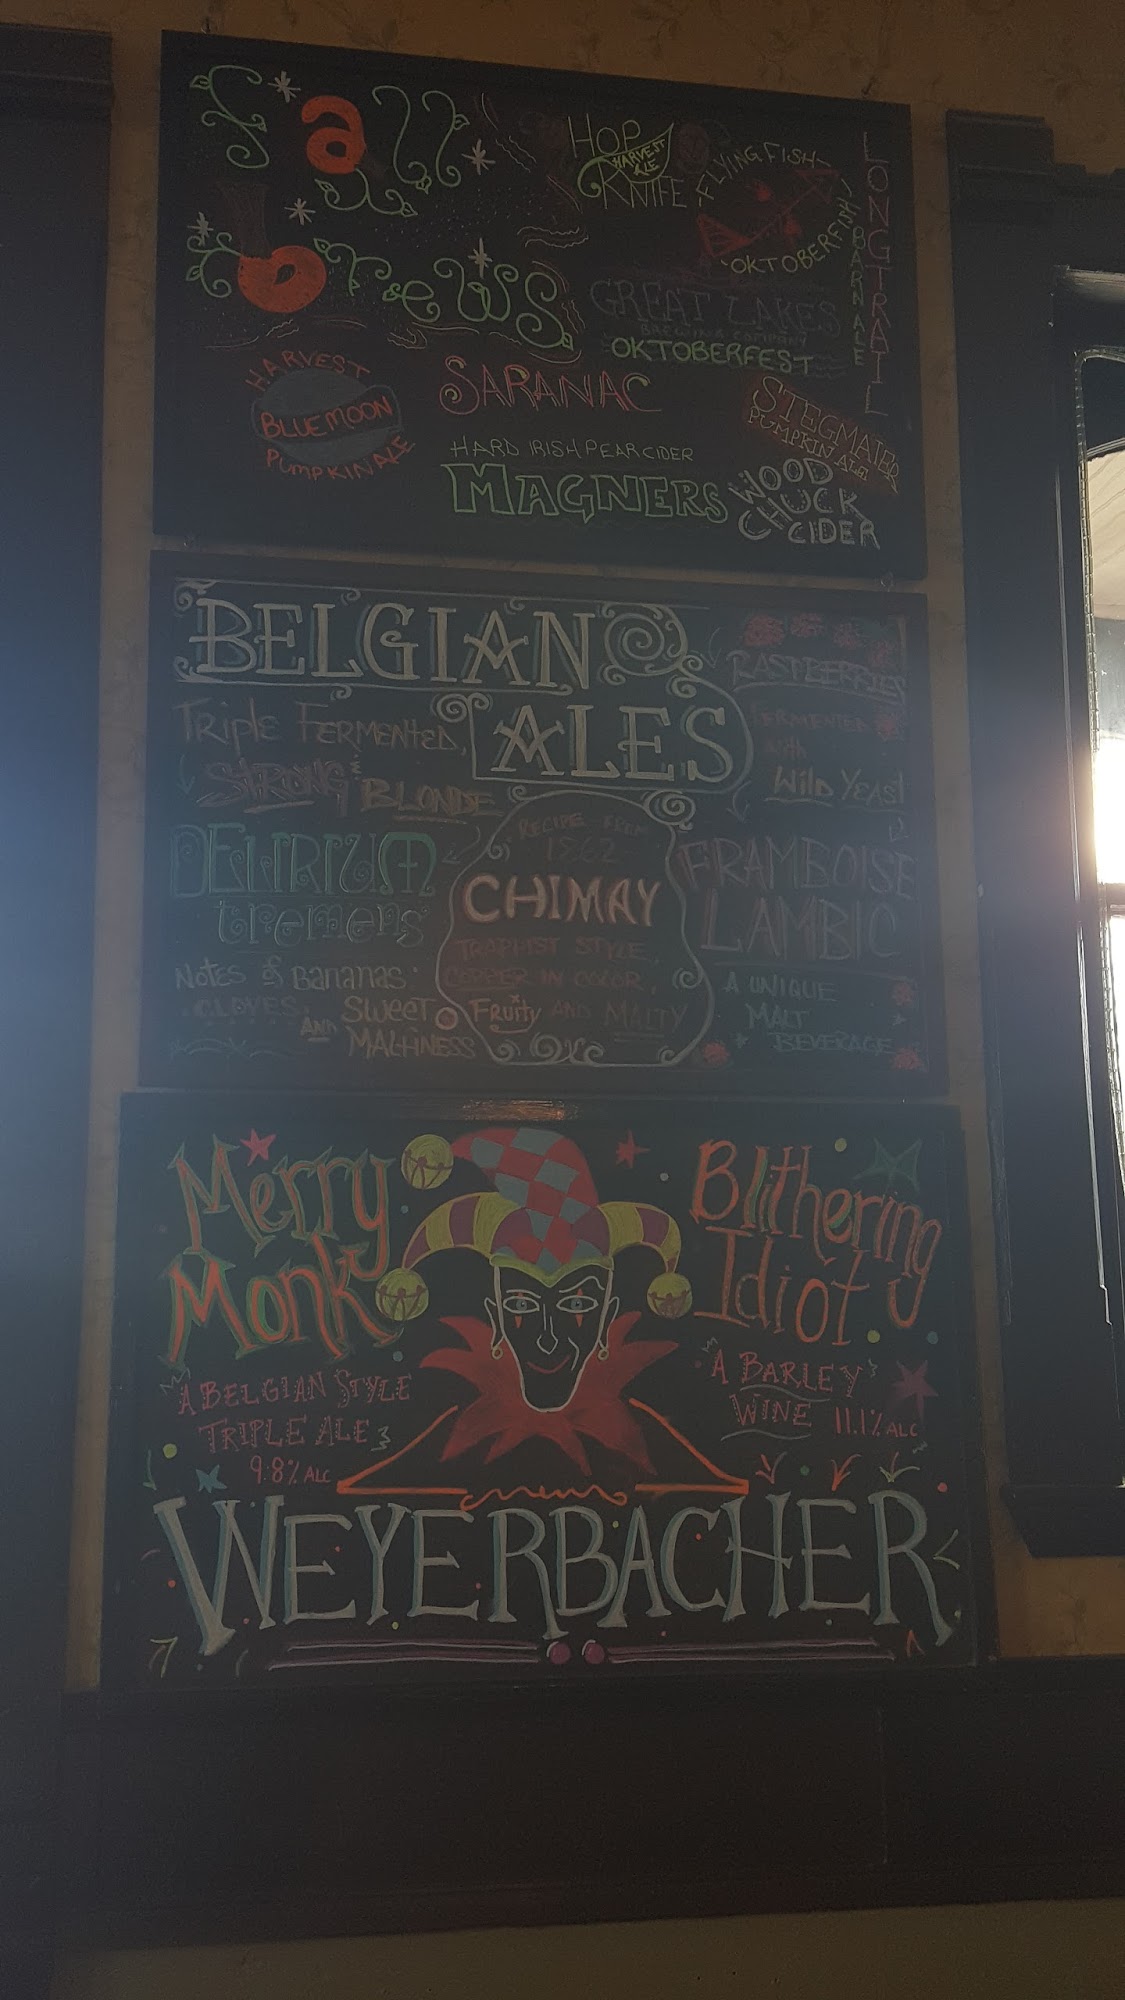 Fall
Brews
HOP
HARVEST
ALE
KNIFE
FLYING FISH
OKTOBERFISH
LONGTRAIL
BARN ALE
GREAT LAKES
BREWING COMPANY
OKTOBERFEST
HARVEST
BLUE MOON
PUMPKIN ALE
SARANAC
HARD IRISH PEAR CIDER
MAGNERS
STEGMAIER
PUMPKIN ALE
WOOD
CHUCK
CIDER
BELGIAN
ALES
TRIPLE FERMENTED,
STRONG &
BLONDE
DELIRIUM
tremens
NOTES of BANANAS,
CLOVES,
AND SWEET
MALTINESS
RECIPE FROM
1862
CHIMAY
TRAPPIST STYLE,
COPPER IN COLOR,
Fruity AND MALTY
RASTBERRIES
FERMENTED
with
Wild YEAST
FRAMBOISE
LAMBIC
A UNIQUE
MALT
BEVERAGE
Merry
Monk
A BELGIAN STYLE
TRIPLE ALE
9.8% ALC
Blithering
Idiot
A BARLEY
WINE 11.1% ALC
WEYERBACHER